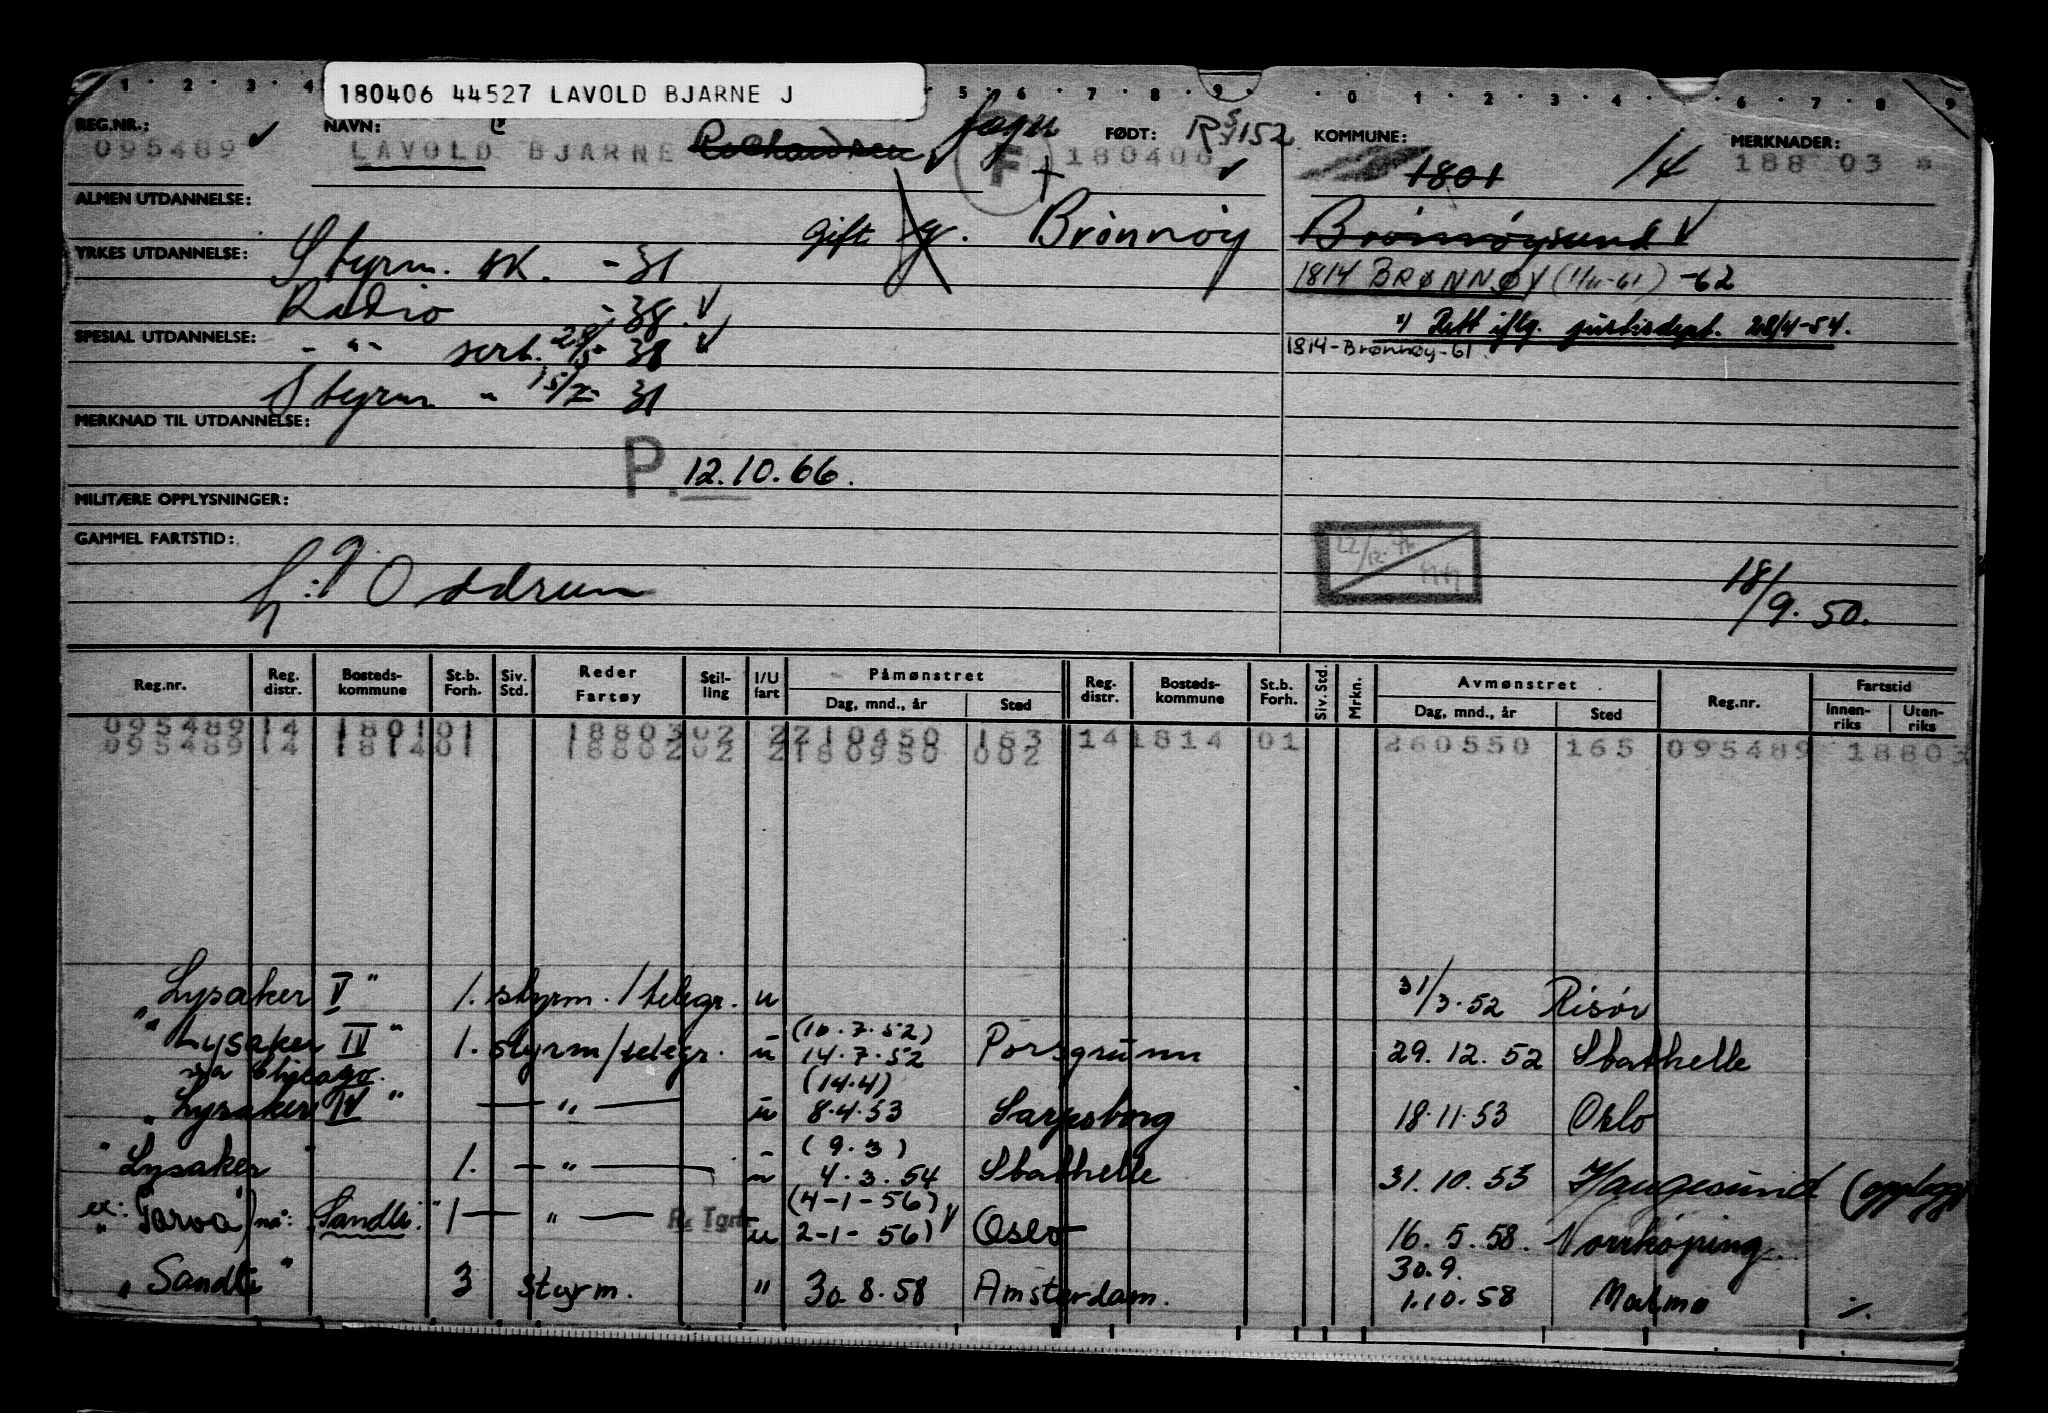 180406 44527 LAVOLD BJARNE J
REG.NR.: NAVN: FØDT: KOMMUNE: MERKNADER:
095489 LAVOLD BJARNE F 180406 1801 14 188 03
ALMEN UTDANNELSE:
Gift gr. Brønnøy Brønnøysund
YRKES UTDANNELSE: Styrm. - 31
1814 BRØNNØY -62
Radio - 38
Rett iflg. justisdept. 28/4-54.
SPESIAL UTDANNELSE: - " - sert. 28/5 - 38
1814-Brønnøy-61
Styrm " 15/7 - 31
MERKNAD TIL UTDANNELSE:
P. 12.10.66.
MILITÆRE OPPLYSNINGER:
GAMMEL FARTSTID:
Oddrun
18/9.50.
Reg.nr. Reg. distr. Bosteds-kommune St.b. Forh. Siv. Std. Reder Fartøy Stil-ling I/U fart Påmønstret Dag, mnd., år Sted Reg. distr. Bosteds-kommune St.b. Forh. Siv. Std. Mrkn. Avmønstret Dag, mnd., år Sted Reg.nr. Fartstid Innen-riks Uten-riks
095489 14 1801 01 18803 02 2 210450 163 14 1814 01 260550 165 095489 18803
095489 14 1814 01 18802 02 2 180950 002
"Lysaker V" 1. styrm. / telegr. u 31/3.52 Risør
"Lysaker IV" 1. styrm/telegr. u (16.7.52) 14.7.52 Porsgrunn 29.12.52 Stathelle
via Chicago.
"Lysaker IV" — " — u (14.4) 8.4.53 Sarpsborg 18.11.53 Oslo
"Lysaker" 1. — " — u (9.3) 4.3.54 Stathelle 31.10.55 Haugesund (opplagg)
ex: "Tarva" nå: Sandli" 1 — " — R. Tgr u (4-1-56) 2-1-56) Oslo 16.5.58. Norrköping
"Sandli" 3 styrm. " 30.8.58 Amsterdam. 30.9. 1.10.58 Malmø